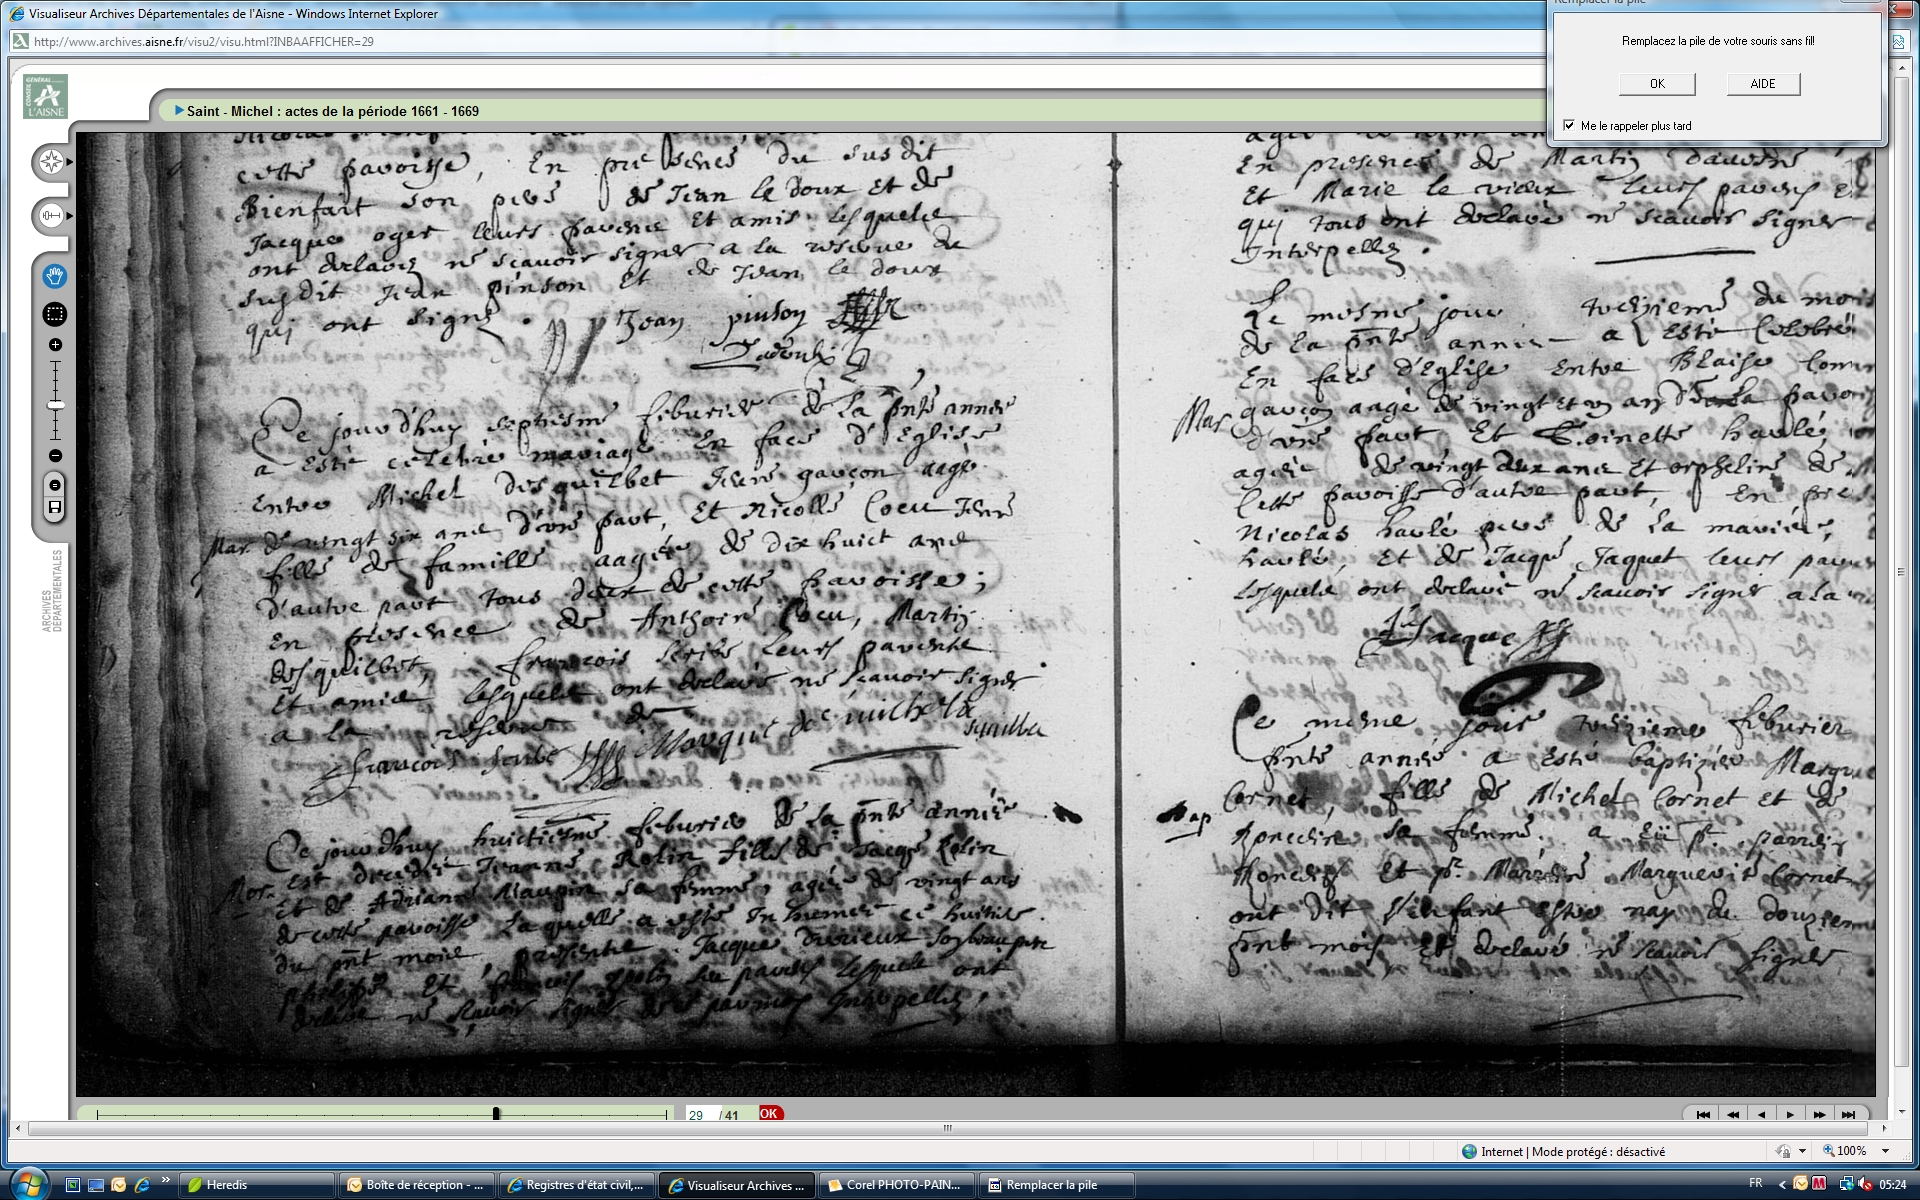 Visualiseur Archives Départementales de l'Aisne - Windows Internet Explorer
http://www.archives.aisne.fr/visu2/visu.html?INBAAFFICHER=29
Remplacer la pile
Remplacez la pile de votre souris sans fil!
OK
AIDE
Me le rappeler plus tard
GÉNÉRAL
CONSEIL
L'AISNE
Saint - Michel : actes de la période 1661 - 1669
ARCHIVES
DÉPARTEMENTALES
cette paroisse, En presence du susdit
Bienfait son pere de Jean le doux et de
Jacque oger leurs parens Et amis lesquels
ont declarez ne scavoir signer a la reserve du
susdit Jean pinson Et de Jean le doux
qui ont signe.
Jean pinson
Ce jourd'huy septiesme feburier de la pnte année
a esté celebré mariage En face d'Eglise
Entre Michel desquilbet Jeune garçon aagé
Mar. de vingt six ans d'une part, Et Nicolle Cocu Jeune
fille de famille aagée de dix huict ans
d'autre part tous deux de cette paroisse;
En presence de Anthoine Cocu, Martin
desquilbet, francois scribe leurs parents
Et amis lesquels ont declaré ne scavoir signer
a la reserve de
francois scribe Marque de michel
Ce jourd'huy huictiesme feburier de la pnte année
Mor. Est decedée Jeanne Rolin fille de Jacque Rolin
Et de Adrianne Maupin sa femme, agée de vingt ans
de cette paroisse Laquelle a esté Inhumée ce huitie.
du pnt mois, presente Jacque
Et francois parens lesquels ont
declaré ne scavoir signer de ce Interpellez.
En presence de Martin
Et Marie le vieux leurs parens
qui tous ont declaré ne scavoir signer
Interpellez.
Le mesme jour treizieme du mois
de la pnte année a Esté Celebré
En face d'Eglise Entre Blaise
Mar. garçon aagé de vingt et un an de la paroi
d'une part Et Toinette haulé,
agée de vingt deux ans Et orpheline de
Cette paroisse d'autre part, En pre
Nicolas haulé pere de la mariée,
haulé, Et de Jacque Jaquet leurs
Lesquels ont declaré ne scavoir signer a la
Jacque
Ce mesme jour treizieme feburier
pnte année a esté baptizée Margue
Cornet, fille de Michel Cornet Et de
Bap
sa femme. a eü pr. parrein
Et pr. Marreine Marguerite Cornet
ont dit l'enfant estre nay du douziem
pnt mois Et declaré ne scavoir signer
29 / 41 OK
Internet | Mode protégé : désactivé
100%
Heredis
Boîte de réception - ...
Registres d'état civil,...
Visualiseur Archives ...
Corel PHOTO-PAIN...
Remplacer la pile
FR
05:24